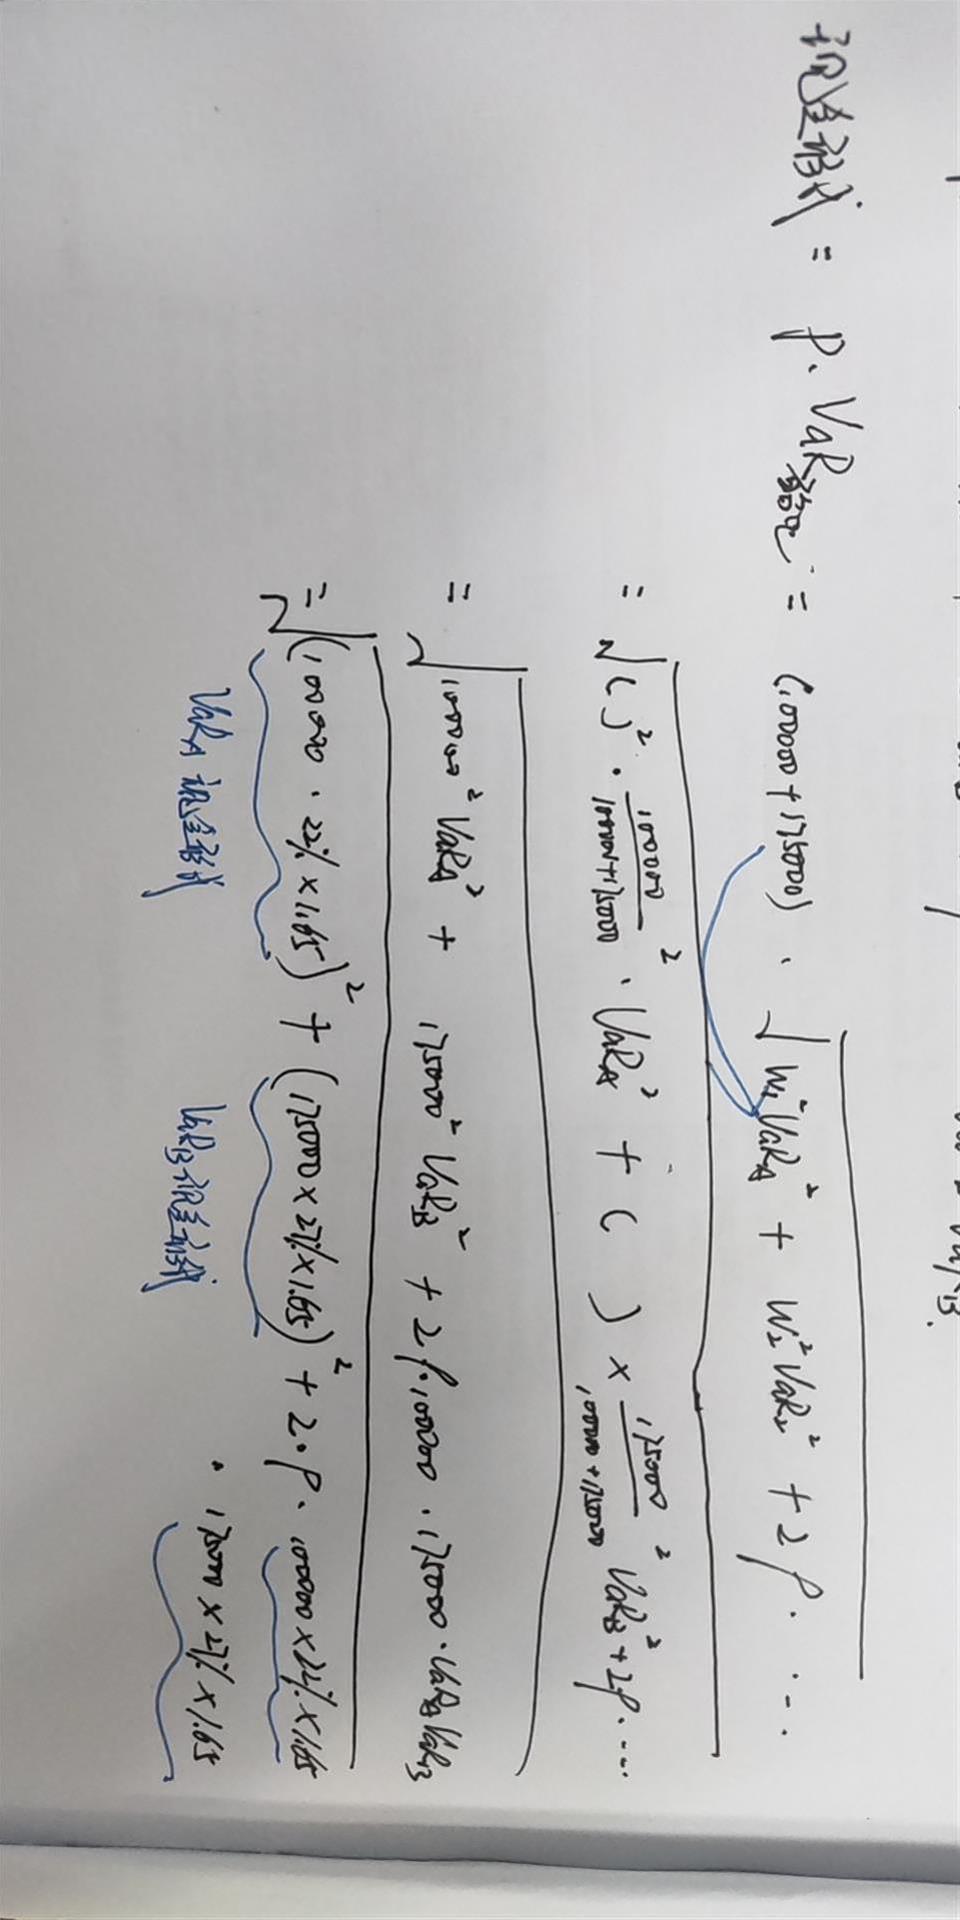 现金形式 = P. VaR组合 = (100000+175000) . √(W₁²VaRA² + W₂²VaR₂² + 2ρ. ...
= √( )² . 100000/(100000+175000)² . VaRA² + ( ) × 175000/(100000+175000)² VaRB² + 2ρ. ...
= √100000² VaRA² + 175000² VaRB² + 2ρ.100000 . 175000 . VaRA VaRB
= √(100000 . 22% × 1.65)² + (175000 × 27% × 1.65)² + 2.ρ. 100000 × 22% × 1.65
. 175000 × 27% × 1.65
VaRA 现金形式 VaRB 现金形式